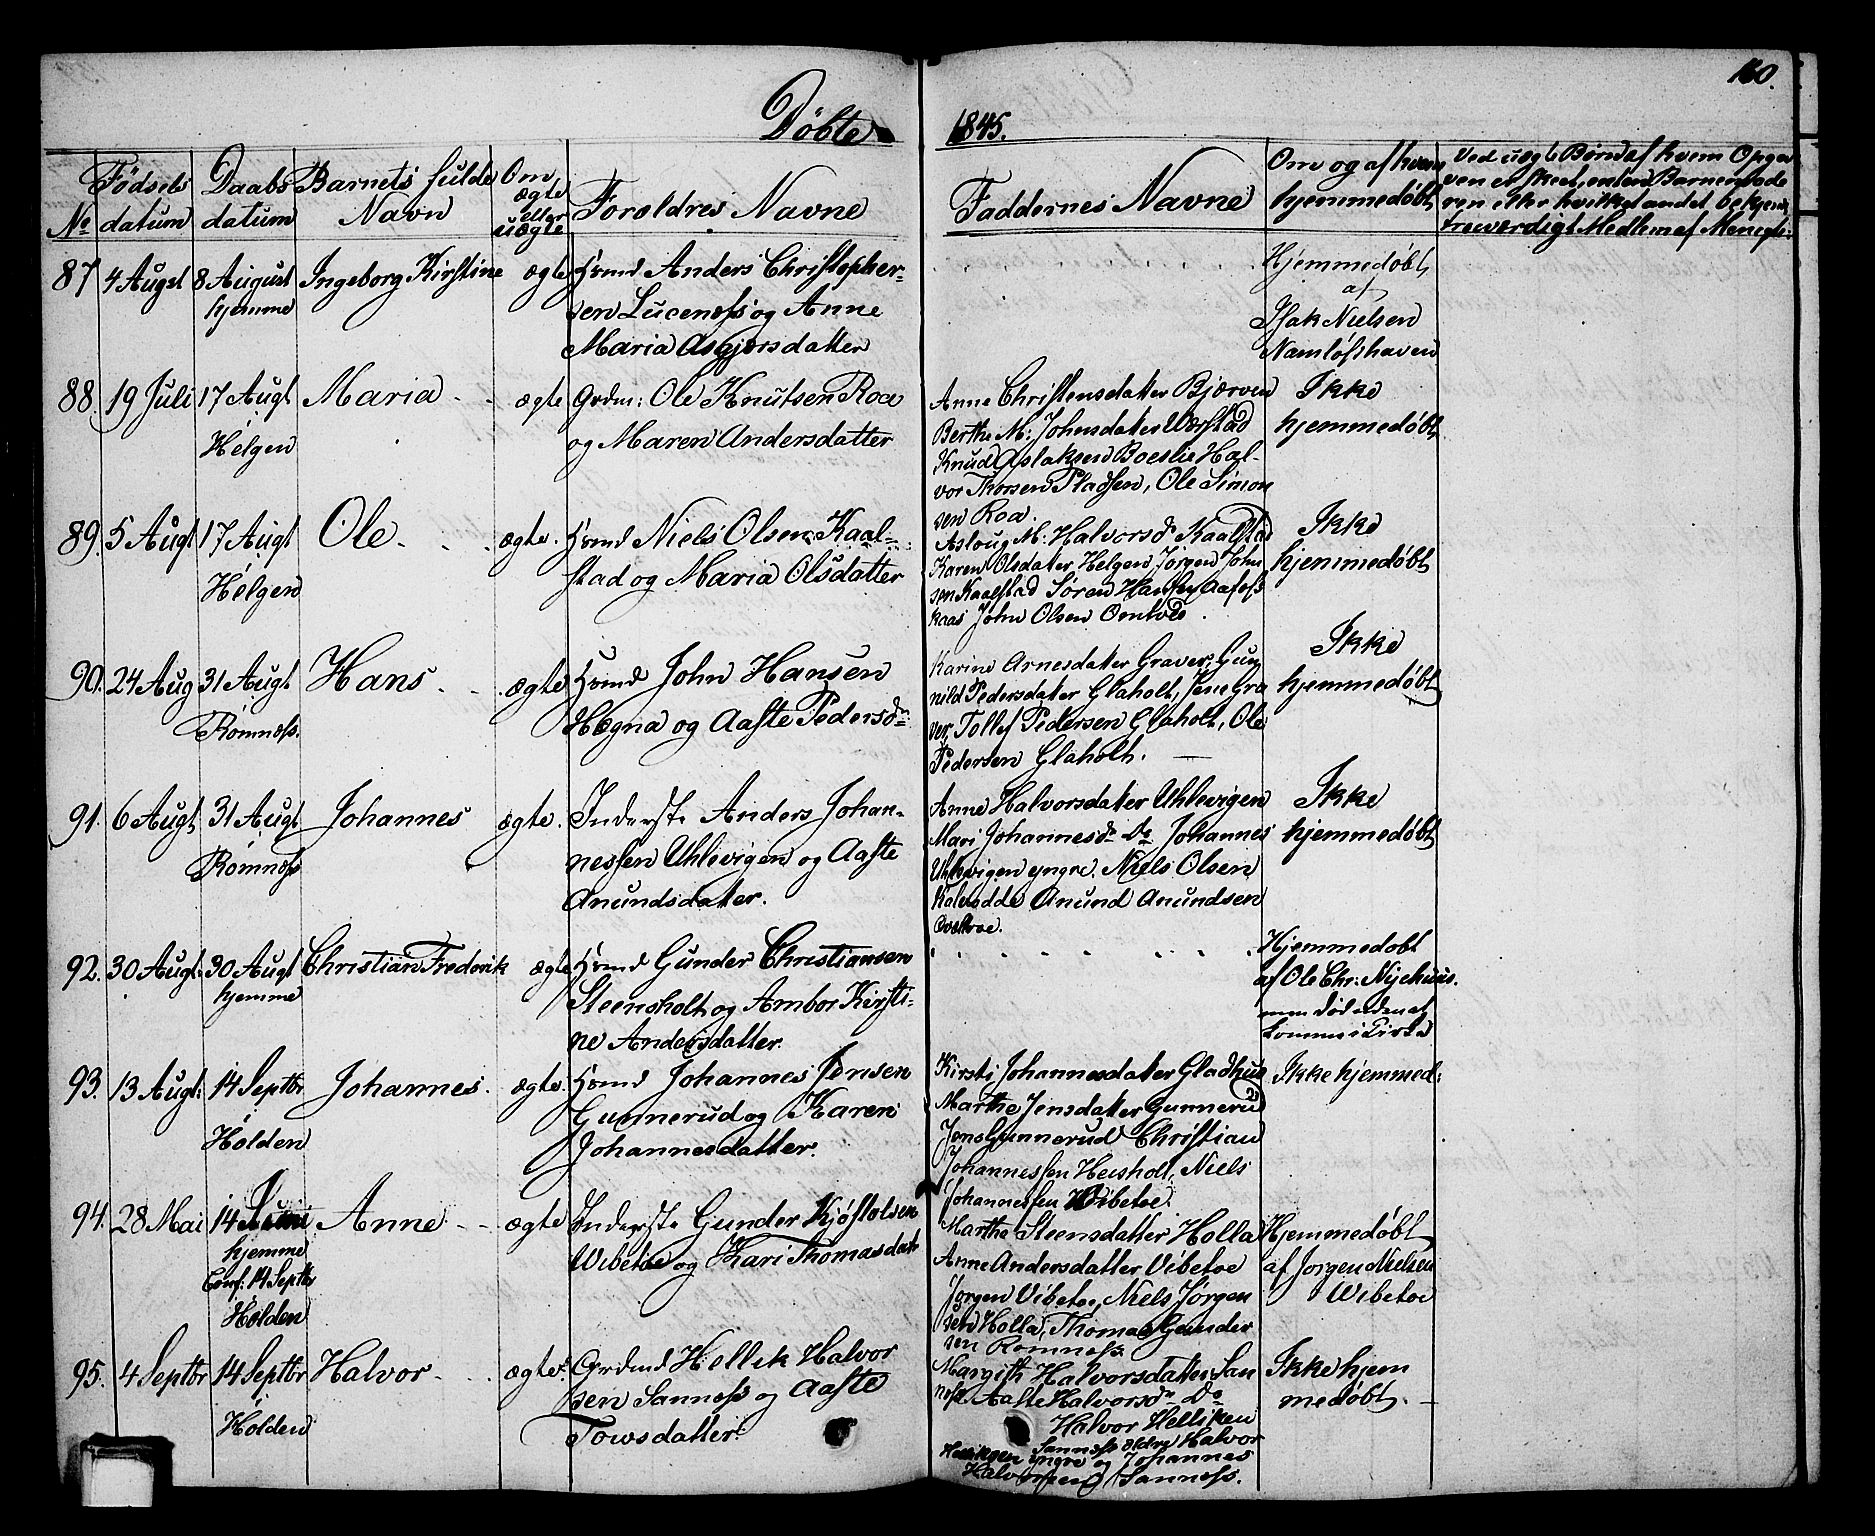 160.
Døbte 1845.
No
Fødsels
datum
Daabs
datum
Barnets fulde
Navn
Om
ægte
eller
uægte
Foreldres Navne
Faddernes Navne
Om og af hvem
hjemmedøbt
Ved uægte Børn af hvem Opgav
ven er skeet, enten Barnemode
ren eller hvilket andet bekjendt
troværdigt Medlem af Menigh:
87 4 Augst 8 August Ingeborg Kirstine ægte Huusmd Anders Christopher-
hjemme sen Lucenæss og Anne
Maria Asgjersdatter
Hjemmedøbt
af
Isak Nielsen
Namløshaven
88. 19 Juli 17 Augt Maria ægte Grdm: Ole Knutsen Roa
Helgen og Maren Andersdatter
Anne Christensdatter Bjærven
Berthe M: Johnsdatter Værstad
Knud Aslaksen Boeslie Hal-
vor Thorsen Pladsen, Ole Simon
sen Roa.
Ikke
hjemmedøbt
89. 5 Augt 17 Augt Ole ægte. Huusmd Niels Olsen Kaal-
Helgen stad og Maria Olsdatter
Asloug M: Halvorsdr Kaalstad
Karen Olsdatter Helgen, Jørgen John
sen Kaalstad Søren Hansen Aafoss
kaas John Olsen Omtved
Ikke
hjemmedøbt
90. 24 Aug 31 Augt. Hans ægte Huusmd John Hansen
Romnæss. Hegna og Aaste Pedersdr
Karine Arnesdatter Graver, Gun
nild Pedersdatter Glaholt, Jens Gra
ver, Tollef Pedersen Glaholt, Ole
Pedersen Glaholt.
Ikke
hjemmedøbt
91. 6 Augt. 31 Augt Johannes ægte. Inderste Anders Johan-
Romnæss nessen Uhlevigen og Aaste
Anundsdatter.
Anne Halvorsdatter Uhlevigen
Mari Johannesdr Do Johannes
Uhlevigen yngre. Niels Olsen
Kalvodde Anund Anundsen
Ikke
hjemmedøbt
92. 30 Augt. 30 Augt Christian Frederik ægte Huusmd Gunder Christiansen
hjemme Steensholt og Ambor Kirsti-
ne Andersdatter.
Hjemmedøbt
af Ole Chr: Nyehuus.
men død uden at
komme i Kirke
93. 13 Augt: 14 Septbr Johannes. ægte. Huusmd Johannes Jensen
Holden Gunnerud og Karen
Johannesdatter.
Kirsti Johannesdatter Gladhus
Marthe Jensdatter Gunnerud
Jens Gunnerud Christian
Johannessen Heisholt, Niels
Johannessen Wibetoe.
Ikke hjemmed:
94. 28 Mai 14 Juni Anne ægte Inderste Gunder Kjøstolsen
hjemme Wibetoe og Kari Thomasdatt
Conf: 14 Septbr
Holden
Marthe Steensdatter Holla
Anne Andersdatter Vibetoe
Jørgen Vibetoe, Niels Jørgen
sen Holla, Thomas Gunder
sen Romnæss
Hjemmedøbt
af Jørgen Nielsen
Wibetoe
95. 4 Septbr 14 Septbr Halvor ægte. Grdmd Hellik Halvor
Holden sen Sannæss og Aaste
Towsdatter.
Margith Halvorsdatter San
næss Aaste Halvorsdr Do
Halvor Helliksen
Sannæss ældre Halvor
Helliksen yngre og Johannes
Halvorsen Sannæss.
Ikke hjem
medøbt.